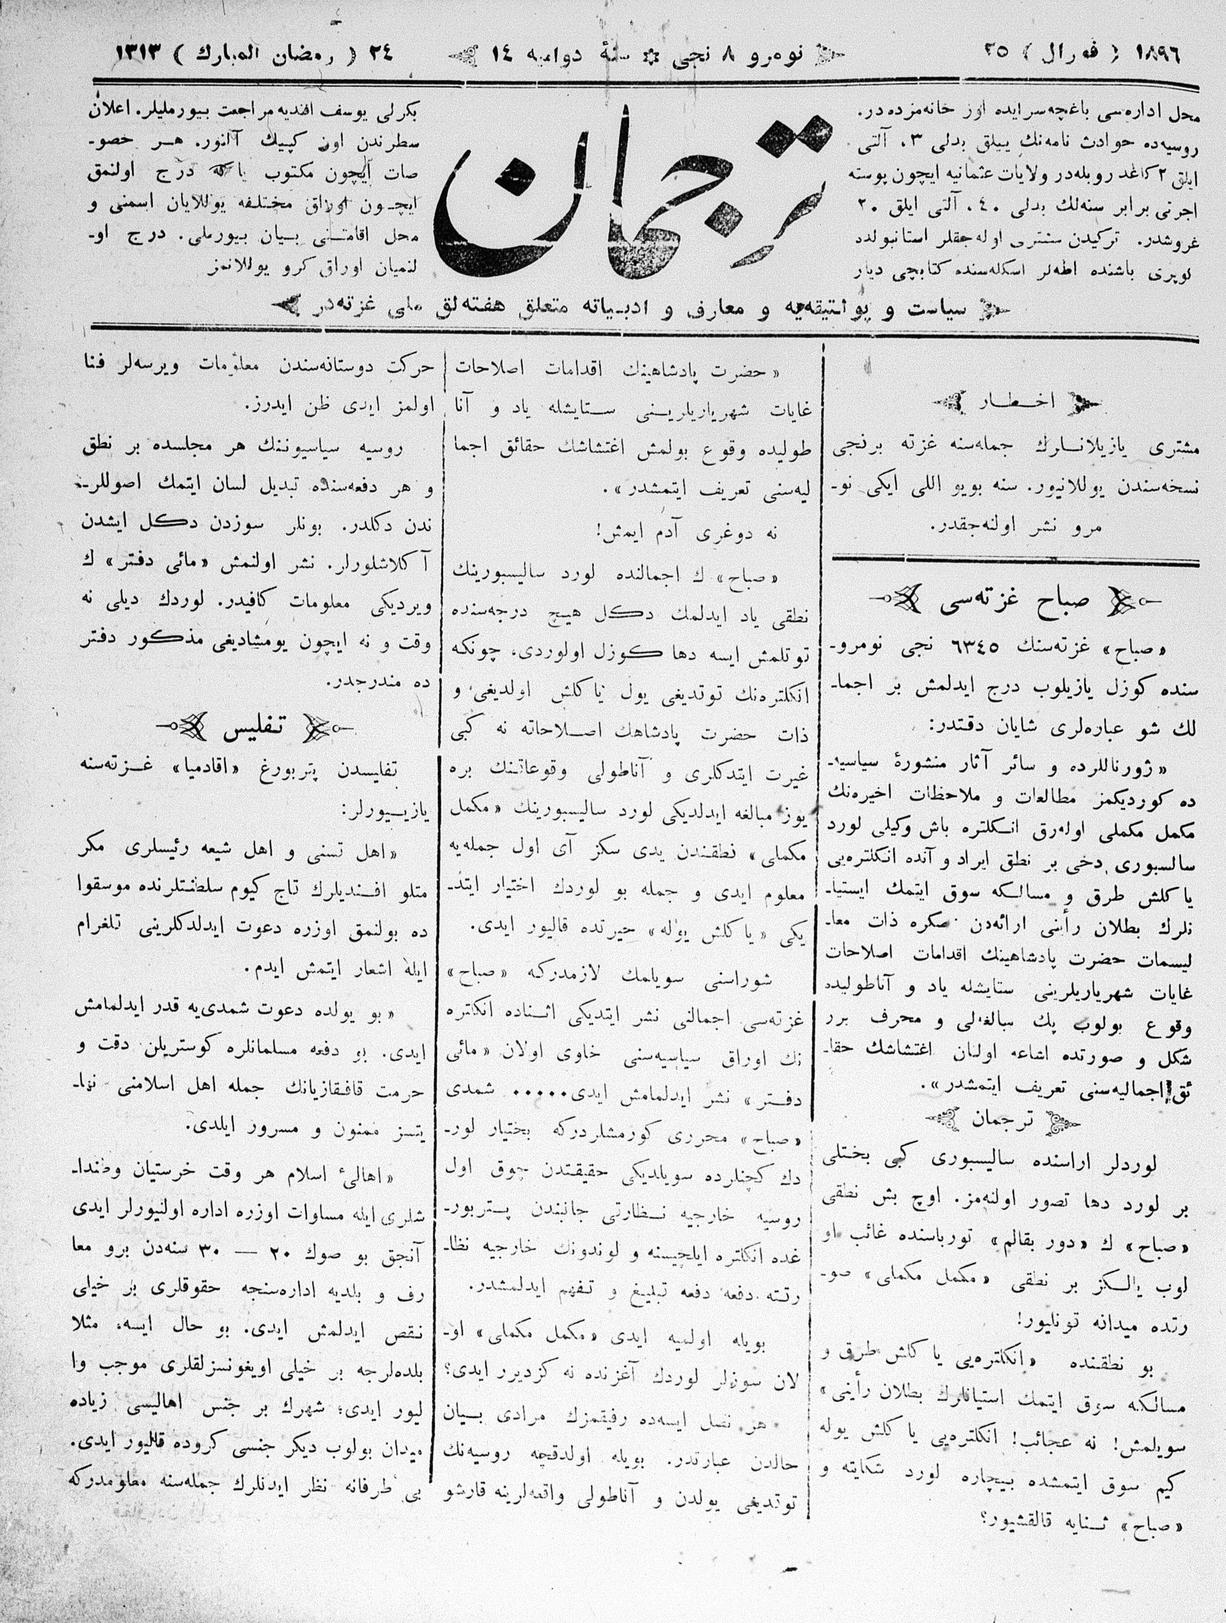 ١٨٩٦ ( فورال ) ٢٥
نومرو ٨ نجى ✼ سنۀ دواميه ١٤
٢٤ ( رمضان المبارك ) ١٣١٣
محل اداره‌سى باغچه‌سرايده اوز خانه‌مزده‌در.
روسيه‌ده حوادث نامه‌نك ييللق بدلى ٣، آلتى
ايلق ٢ كاغد روبله‌در ولايات عثمانيه ايچون پوسته
اجرتى برابر سنه‌لك بدلى ٤٠، آلتى ايلق ٢٠
غروشدر. تركيدن مشترى اوله‌جقلر استانبولده
كوپرى باشنده اطه‌لر اسكله‌سنده كتابچى ديار
بكرلى يوسف افنديه مراجعت بيورمليلر. اعلان
سطرندن اون كپيك آلنور. هر خصو‌ـ
صات ايچون مكتوب يازله درج اولنمق
ايچون اوراق مختلفه يوللايان اسمنى و
محل اقامتنى بيان بيورملى. درج او‌ـ
لنميان اوراق كرو يوللانمز
ترجمان
سياست و پولتيقه‌يه و معارف و ادبياته متعلق هفته‌لق ملى غزته‌در
اخطار
مشترى يازيلانلرك جمله‌سنه غزته برنجى
نسخه‌سندن يوللانيور. سنه بويو اللى ايكى نو‌ـ
مرو نشر اولنه‌جقدر.
صباح غزته‌سى
«صباح» غزته‌سنك ٦٣٤٥ نجى نومرو‌ـ
سنده كوزل يازيلوب درج ايدلمش بر اجما‌ـ
لك شو عباره‌لرى شايان دقتدر:
«ژورناللرده و سائر آثار منشورۀ سياسيه‌ـ
ده كورديكمز مطالعات و ملاحظات اخيره‌نك
مكمل مكملى اوله‌رق انكلتره باش وكيلى لورد
سالسبورى دخى بر نطق ايراد و آنده انكلتره‌يى
ياكلش طرق و مسالكه سوق ايتمك ايستيا‌ـ
نلرك بطلان رأينى ارائه‌دن صكره ذات معا‌ـ
ليسمات حضرت پادشاهينك اقدامات اصلاحات
غايات شهرياريلرينى ستايشله ياد و آناطوليده
وقوع بولوب پك مبالغه‌لى و محرف برر
شكل و صورتده اشاعه اولنان اغتشاشك حقا‌ـ
ئق اجماليه‌سنى تعريف ايتمشدر».
ترجمان
لوردلر اراسنده ساليسبورى كبى بختلى
بر لورد دها تصور اولنه‌مز. اوچ بش نطقى
«صباح» ك «دور بقالم» تورباسنده غائب او
لوب يالكز بر نطقى «مكمل مكملى» صو‌ـ
رتده ميدانه قونليور!
بو نطقنده «انكلتره‌يى ياكلش طرق و
مسالكه سوق ايتمك استيانلرك بطلان رأينى»
سويلمش! نه عجائب! انكلتره‌يى ياكلش يوله
كيم سوق ايتمشده بيچاره لورد شكايته و
«صباح» ثنايه قالقشيور؟
«حضرت پادشاهينك اقدامات اصلاحات
غايات شهرياريلرينى ستايشله ياد و آنا
طوليده وقوع بولمش اغتشاشك حقائق اجما
ليه‌سنى تعريف ايتمشدر».
نه دوغرى آدم ايمش!
«صباح» ك اجمالنده لورد ساليسبورينك
نطقى ياد ايدلمك دكل هيچ درجه‌سنده
توتلمش ايسه دها كوزل اولوردى، چونكه
انكلتره‌نك توتديغى يول ياكلش اولديغى و
ذات حضرت پادشاهك اصلاحاته نه كبى
غيرت ايتدكلرى و آناطولى وقوعاتنك بره
يوز مبالغه ايدلديكى لورد ساليسبورينك «مكمل
مكملى» نطقندن يدى سكز آى اول جمله‌يه
معلوم ايدى و جمله بو لوردك اختيار ايتد‌ـ
يكى «ياكلش يوله» حيرتده قاليور ايدى.
شوراسنى سويلمك لازمدركه «صباح»
غزته‌سى اجمالنى نشر ايتديكى اثناده انكلتره
نك اوراق سياسيه‌سنى حاوى اولان «مائى
دفتر» نشر ايدلمامش ايدى..... شمدى
«صباح» محررى كورمشلردركه بختيار لور‌ـ
دك كچنلرده سويلديكى حقيقتدن چوق اول
روسيه خارجيه نظارتى جانبندن پتربور‌ـ
غده انكلتره ايلچيسنه و لوندونك خارجيه نظا‌ـ
رتنه دفعه دفعه تبليغ و تفهم ايدلمشدر.
بويله اولميه ايدى «مكمل مكملى» او‌ـ
لان سوزلر لوردك آغزنده نه كزدير ايدى؟
هر نصل ايسه‌ده رفيقمزك مرادى بيان
حالدن عبارتدر. بويله اولدقجه روسيه‌نك
توتديغى يولدن و آناطولى واقعه‌لرينه قارشو
حركت دوستانه‌سندن معلومات ويرسه‌لر فنا
اولمز ايدى ظن ايدرز.
روسيه سياسيوننك هر مجلسده بر نطق
و هر دفعه‌سنده تبديل لسان ايتمك اصوللر‌ـ
ندن دكلدر. بونلر سوزدن دكل ايشدن
آكلاشلورلر. نشر اولنمش «مائى دفتر» ك
ويرديكى معلومات كافيدر. لوردك ديلى نه
وقت و نه ايچون يومشاديغى مذكور دفتر
ده مندرجدر.
تفليس
تفليسدن پتربورغ «اقادميا» غزته‌سنه
يازيورلر:
«اهل تسنى و اهل شيعه رئيسلرى مكر
متلو افنديلرك تاج كيوم سلطنتلرنده موسقوا
ده بولنمق اوزره دعوت ايدلدكلرينى تلغرام
ايله اشعار ايتمش ايدم.
«بو يولده دعوت شمدى‌يه قدر ايدلمامش
ايدى. بو دفعه مسلمانلره كوستريلن دقت و
حرمت قافقازيانك جمله اهل اسلامنى نها‌ـ
يتسز ممنون و مسرور ايلدى.
«اهالئ اسلام هر وقت خرستيان وطندا‌ـ
شلرى ايله مساوات اوزره اداره اولنيورلر ايدى
آنجق بو صوك ٢٠ — ٣٠ سنه‌دن برو معا
رف و بلديه اداره‌سنجه حقوقلرى بر خيلى
نقص ايدلمش ايدى. بو حال ايسه، مثلا
بلده‌لرجه بر خيلى اويغونسزلقلرى موجب وا
ليور ايدى؛ شهرك بر جنس اهاليسى زياده
ميدان بولوب ديكر جنسى كروده قاليور ايدى.
بى طرفانه نظر ايدنلرك جمله‌سنه معلومدركه